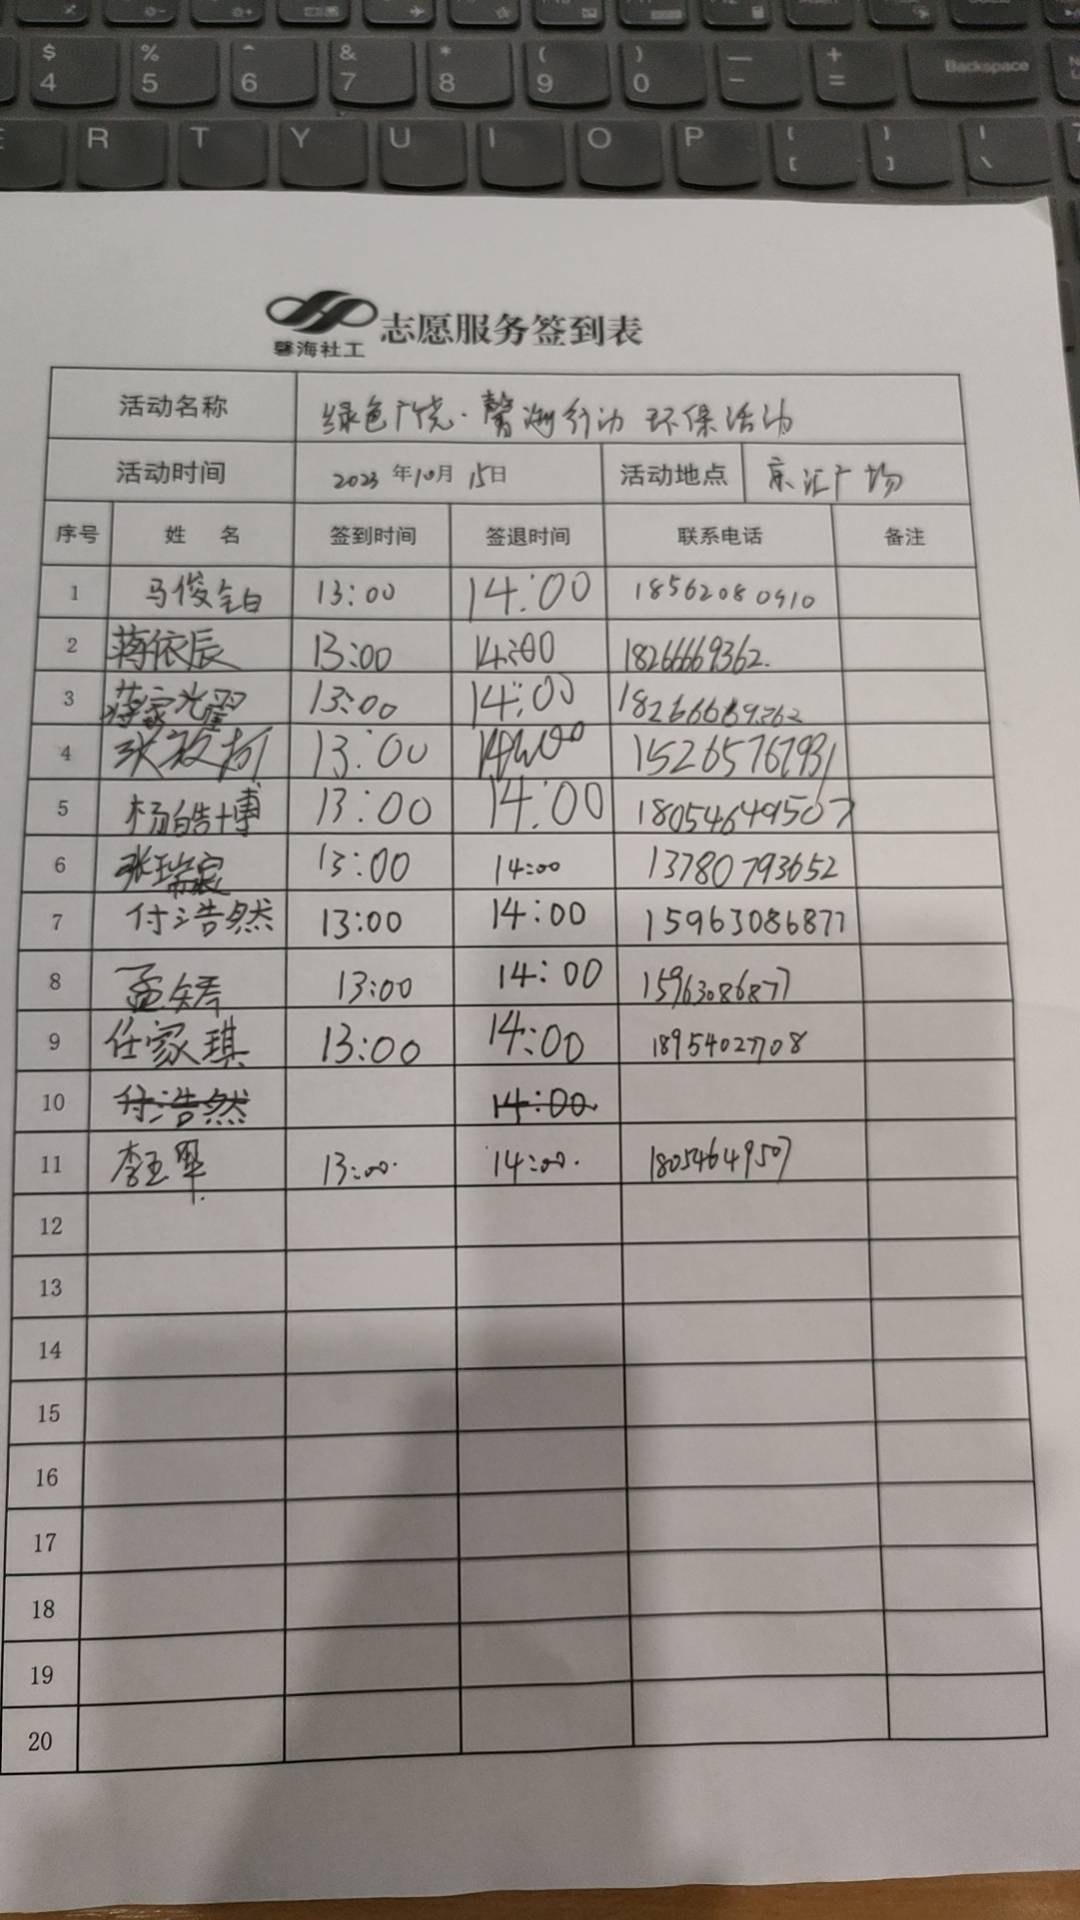 $ % ^ & * ( ) — +
4 5 6 7 8 9 0 - = Backspace
E R T Y U I O P { } |
[ ] \
馨海社工
志愿服务签到表
活动名称 绿色广饶·馨海行动 环保活动
活动时间 2023 年 10 月 15 日 活动地点 京汇广场
序号 姓 名 签到时间 签退时间 联系电话 备注
1 马俊 13:00 14:00 18562080910
2 蒋依辰 13:00 14:00 18266669362.
3 蒋家 13:00 14:00 18266669362
4 张 13:00 14:00 15265767931
5 杨皓博 13:00 14:00 18054649507
6 张瑞宸 13:00 14:00 13780793652
7 付浩然 13:00 14:00 15963086877
8 孟 13:00 14:00 15963086877
9 任家琪 13:00 14:00 18954027708
10 付浩然 14:00
11 李 13:00. 14:00. 18054649507
12
13
14
15
16
17
18
19
20